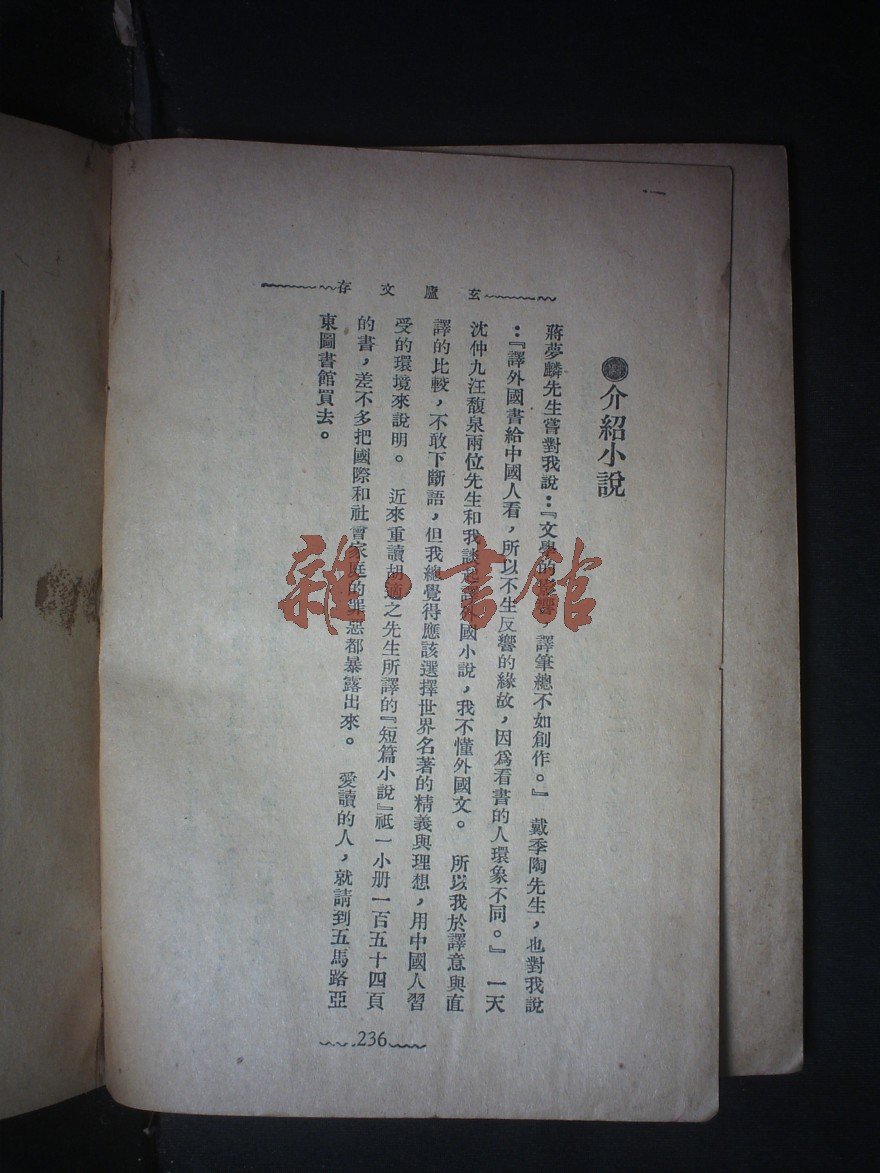 玄廬文存
介紹小說
蔣夢麟先生嘗對我說：『文學的影響，譯筆總不如創作。』 戴季陶先生，也對我說
：『譯外國書給中國人看，所以不生反響的緣故，因爲看書的人環象不同。』 一天
沈仲九汪馥泉兩位先生和我談起譯外國小說，我不懂外國文。 所以我於譯意與直
譯的比較，不敢下斷語，但我總覺得應該選擇世界名著的精義與理想，用中國人習
受的環境來說明。 近來重讀胡適之先生所譯的『短篇小說』祇一小册一百五十四頁
的書，差不多把國際和社會家庭的罪惡都暴露出來。 愛讀的人，就請到五馬路亞
東圖書館買去。
236
雜·書館